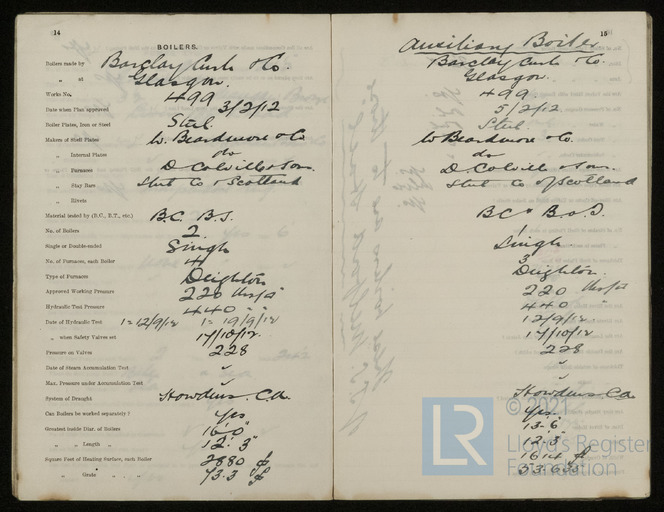 14
BOILERS.
Boilers made by Barclay Curle & Co.
„ at Glasgow.
Works No. 499
Date when Plan approved 3/2/12
Boiler Plates, Iron or Steel Steel
Makers of Shell Plates W. Beardmore & Co
„ Internal Plates do
„ Furnaces D Colville & Sons.
„ Stay Bars Steel Co of Scotland
„ Rivets
Material tested by (B.C., B.T., etc.) B.C. B.S.
No. of Boilers 2.
Single or Double-ended Single
No. of Furnaces, each Boiler 4
Type of Furnaces Deighton
Approved Working Pressure 220 lbs/□"
Hydraulic Test Pressure 440 " "
Date of Hydraulic Test 1=12/9/12 1=19/9/12
„ when Safety Valves set 17/10/12.
Pressure on Valves 228
Date of Steam Accumulation Test
Max. Pressure under Accumulation Test
System of Draught Howdens. C.A.
Can Boilers be worked separately? Yes
Greatest inside Diar. of Boilers 16'0"
„ „ Length „ 12'.3"
Square Feet of Heating Surface, each Boiler 2880
„ Grate „ „ 73.3
15
Auxiliary Boiler
Barclay Curle & Co.
Glasgow.
499.
5/2/12
Steel.
W Beardmore & Co.
do
D. Colville & Sons.
Steel Co of Scotland
B C & B.o.S.
1
Single.
3
Deighton.
220 lbs/□"
440 "
12/9/12
17/10/12
228
Howdens C.A.
Yes.
13.6"
12.3"
1614
53.625
LR
© 2021
Lloyd's Register
Foundation